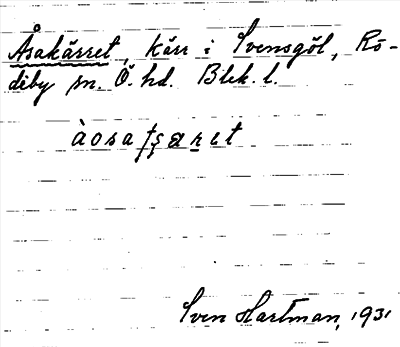 Åsakärret, kärr i Svensgöl, Rö-
deby sn. Ö. hd. Blek. l.
Sven Hartman, 1931